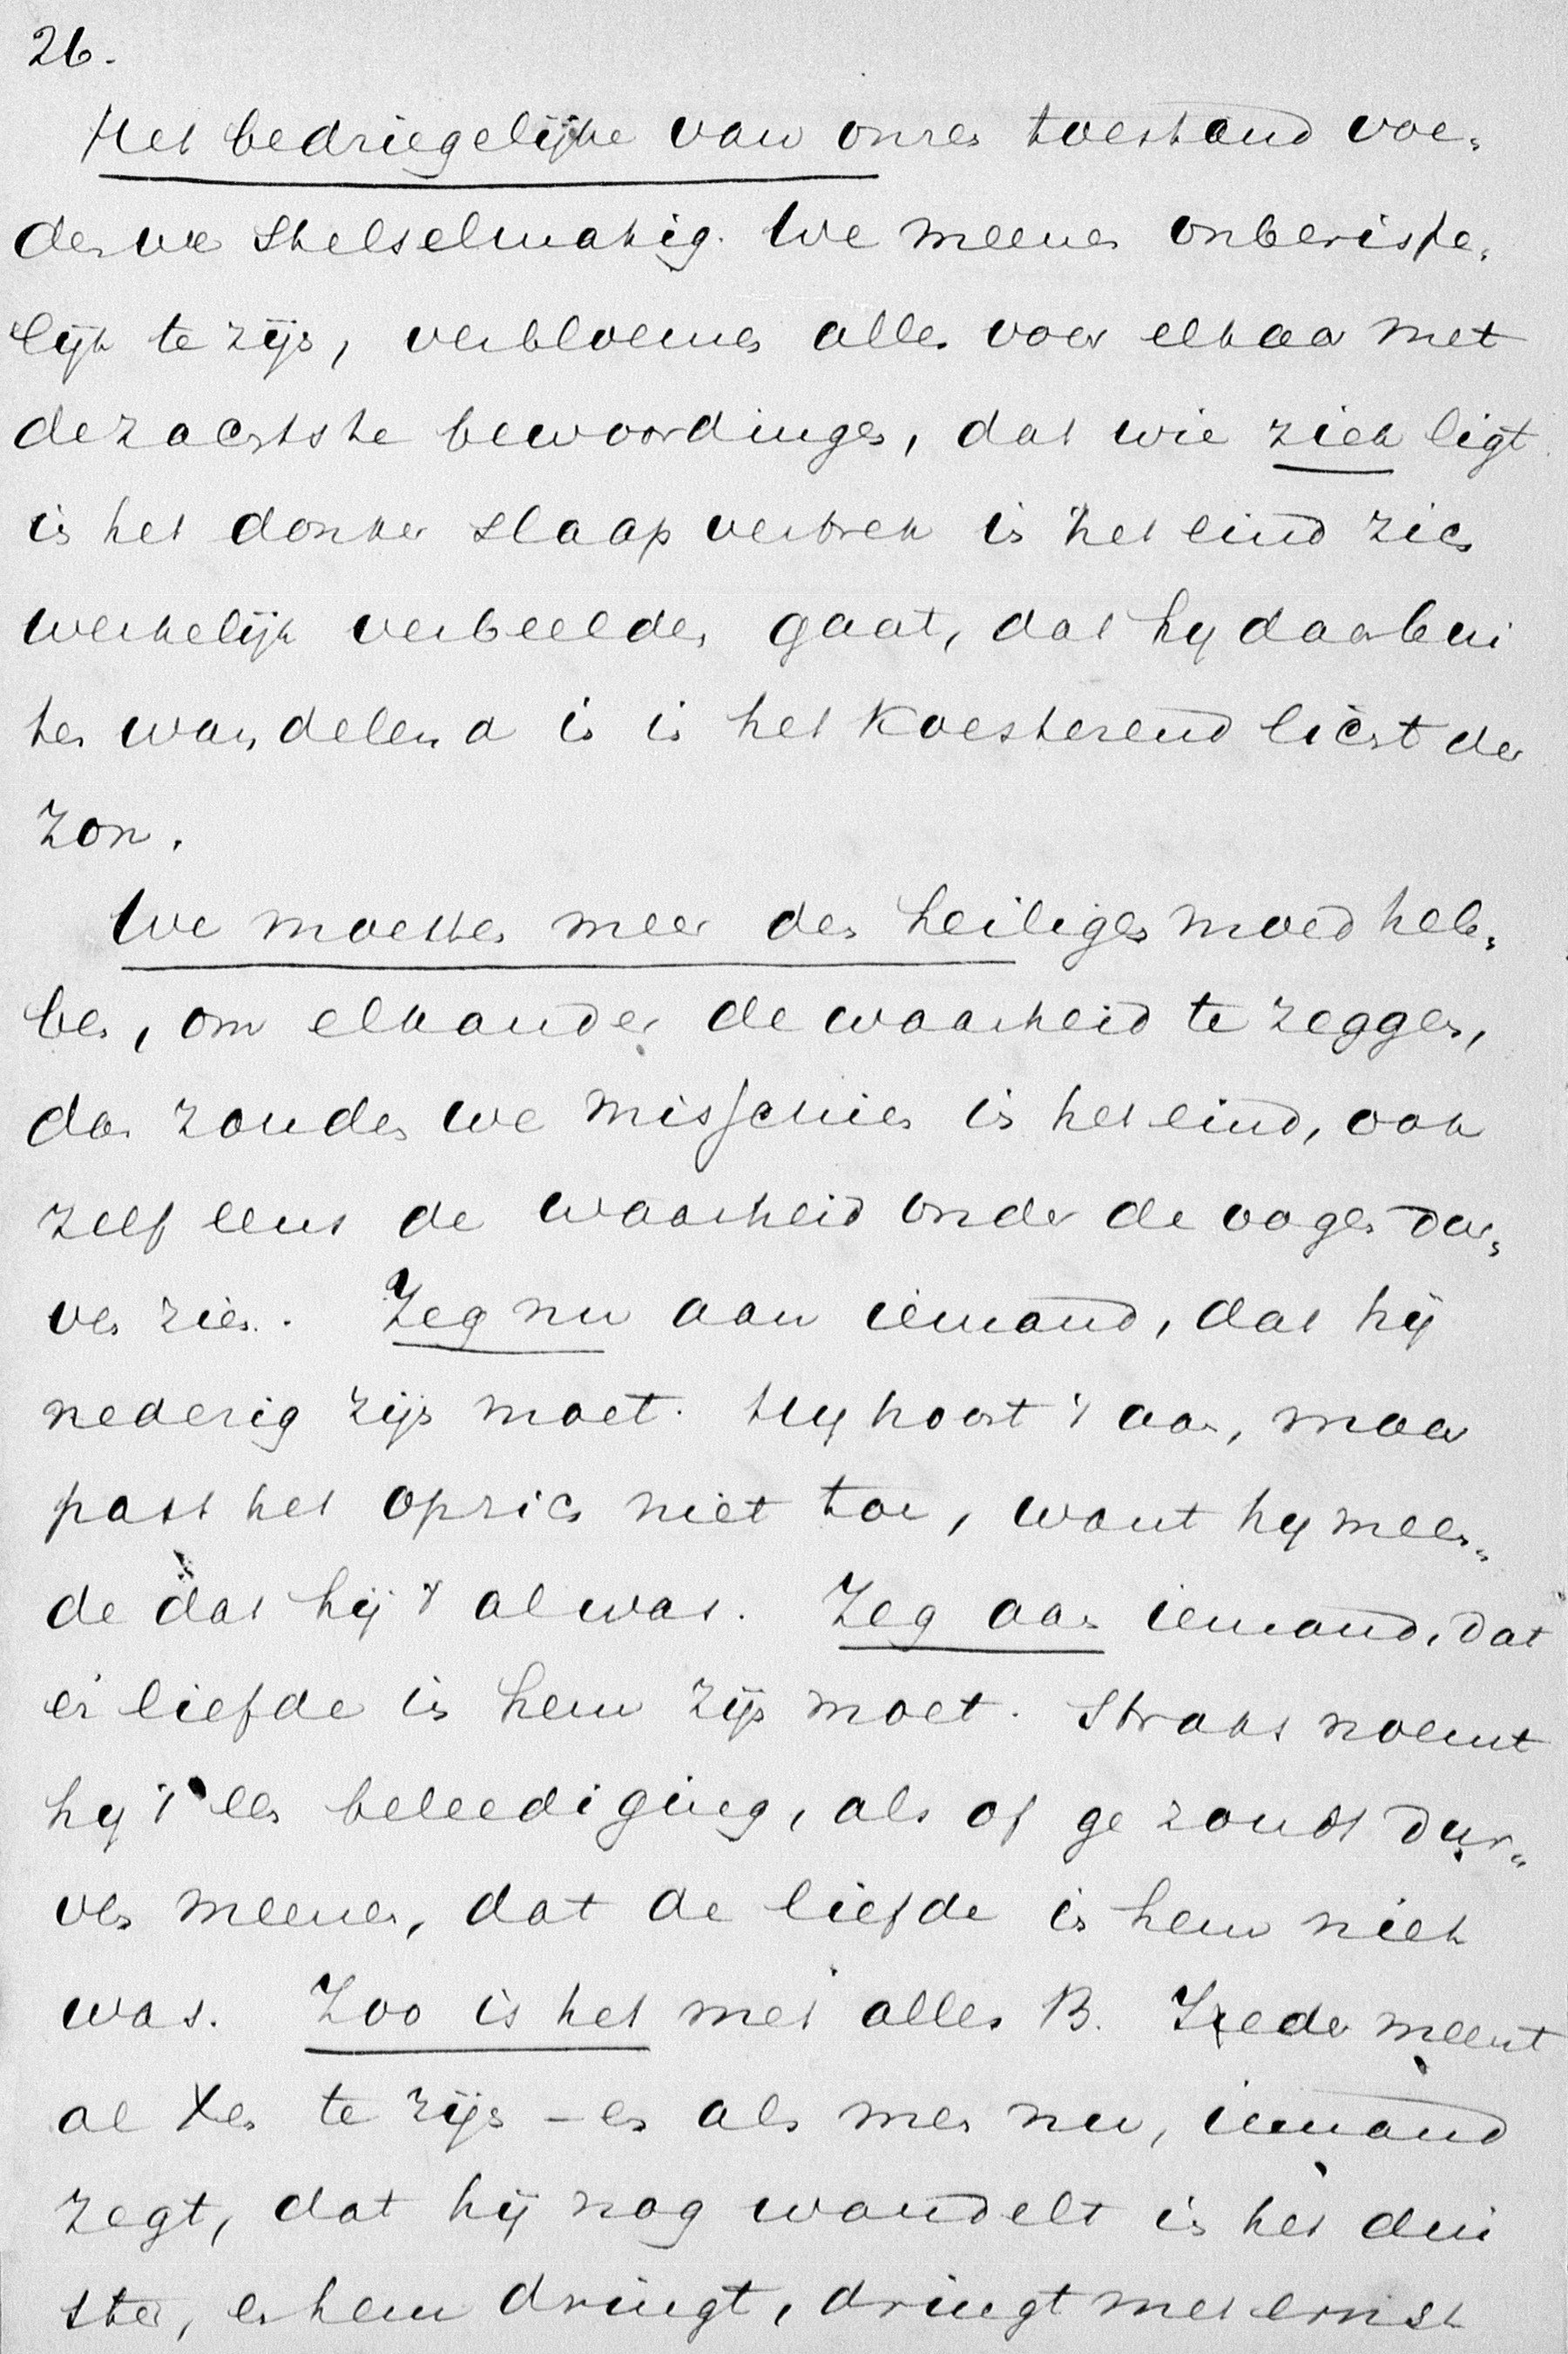 26.
Het bedriegelijke van onzen toestand voe-
den we stelselmatig. We meenen onberispe-
lijk te zijn, verbloemen alles voor elkaar met
de zachtste bewoordingen, dat wie ziek ligt
in het donker slaapvertrek in het eind zich
werkelijk verbeelden gaat, dat hij daarbui
ten wandelend is in het koesterend licht der
zon.
We moesten meer den heiligen moed heb-
ben, om elkander de waarheid te zeggen,
dan zouden we misschien in het eind, ook
zelf eens de waarheid onder de oogen dur-
ven zien. Zeg nu aan iemand, dat hij
nederig zijn moet. Hij hoort 't aan, maar
past het op zich niet toe, want hij meen-
de dat hij 't al was. Zeg aan iemand, dat
er liefde in hem zijn moet. Straks noemt
hij 't een beleediging, als of ge zoudt dur-
ven meenen, dat de liefde in hem niet
was. Zoo is het met alles B. Ieder meent
al Xen te zijn – en als men nu, iemand
zegt, dat hij nog wandelt in het dui
ster, en hem dringt, dringt met ernst